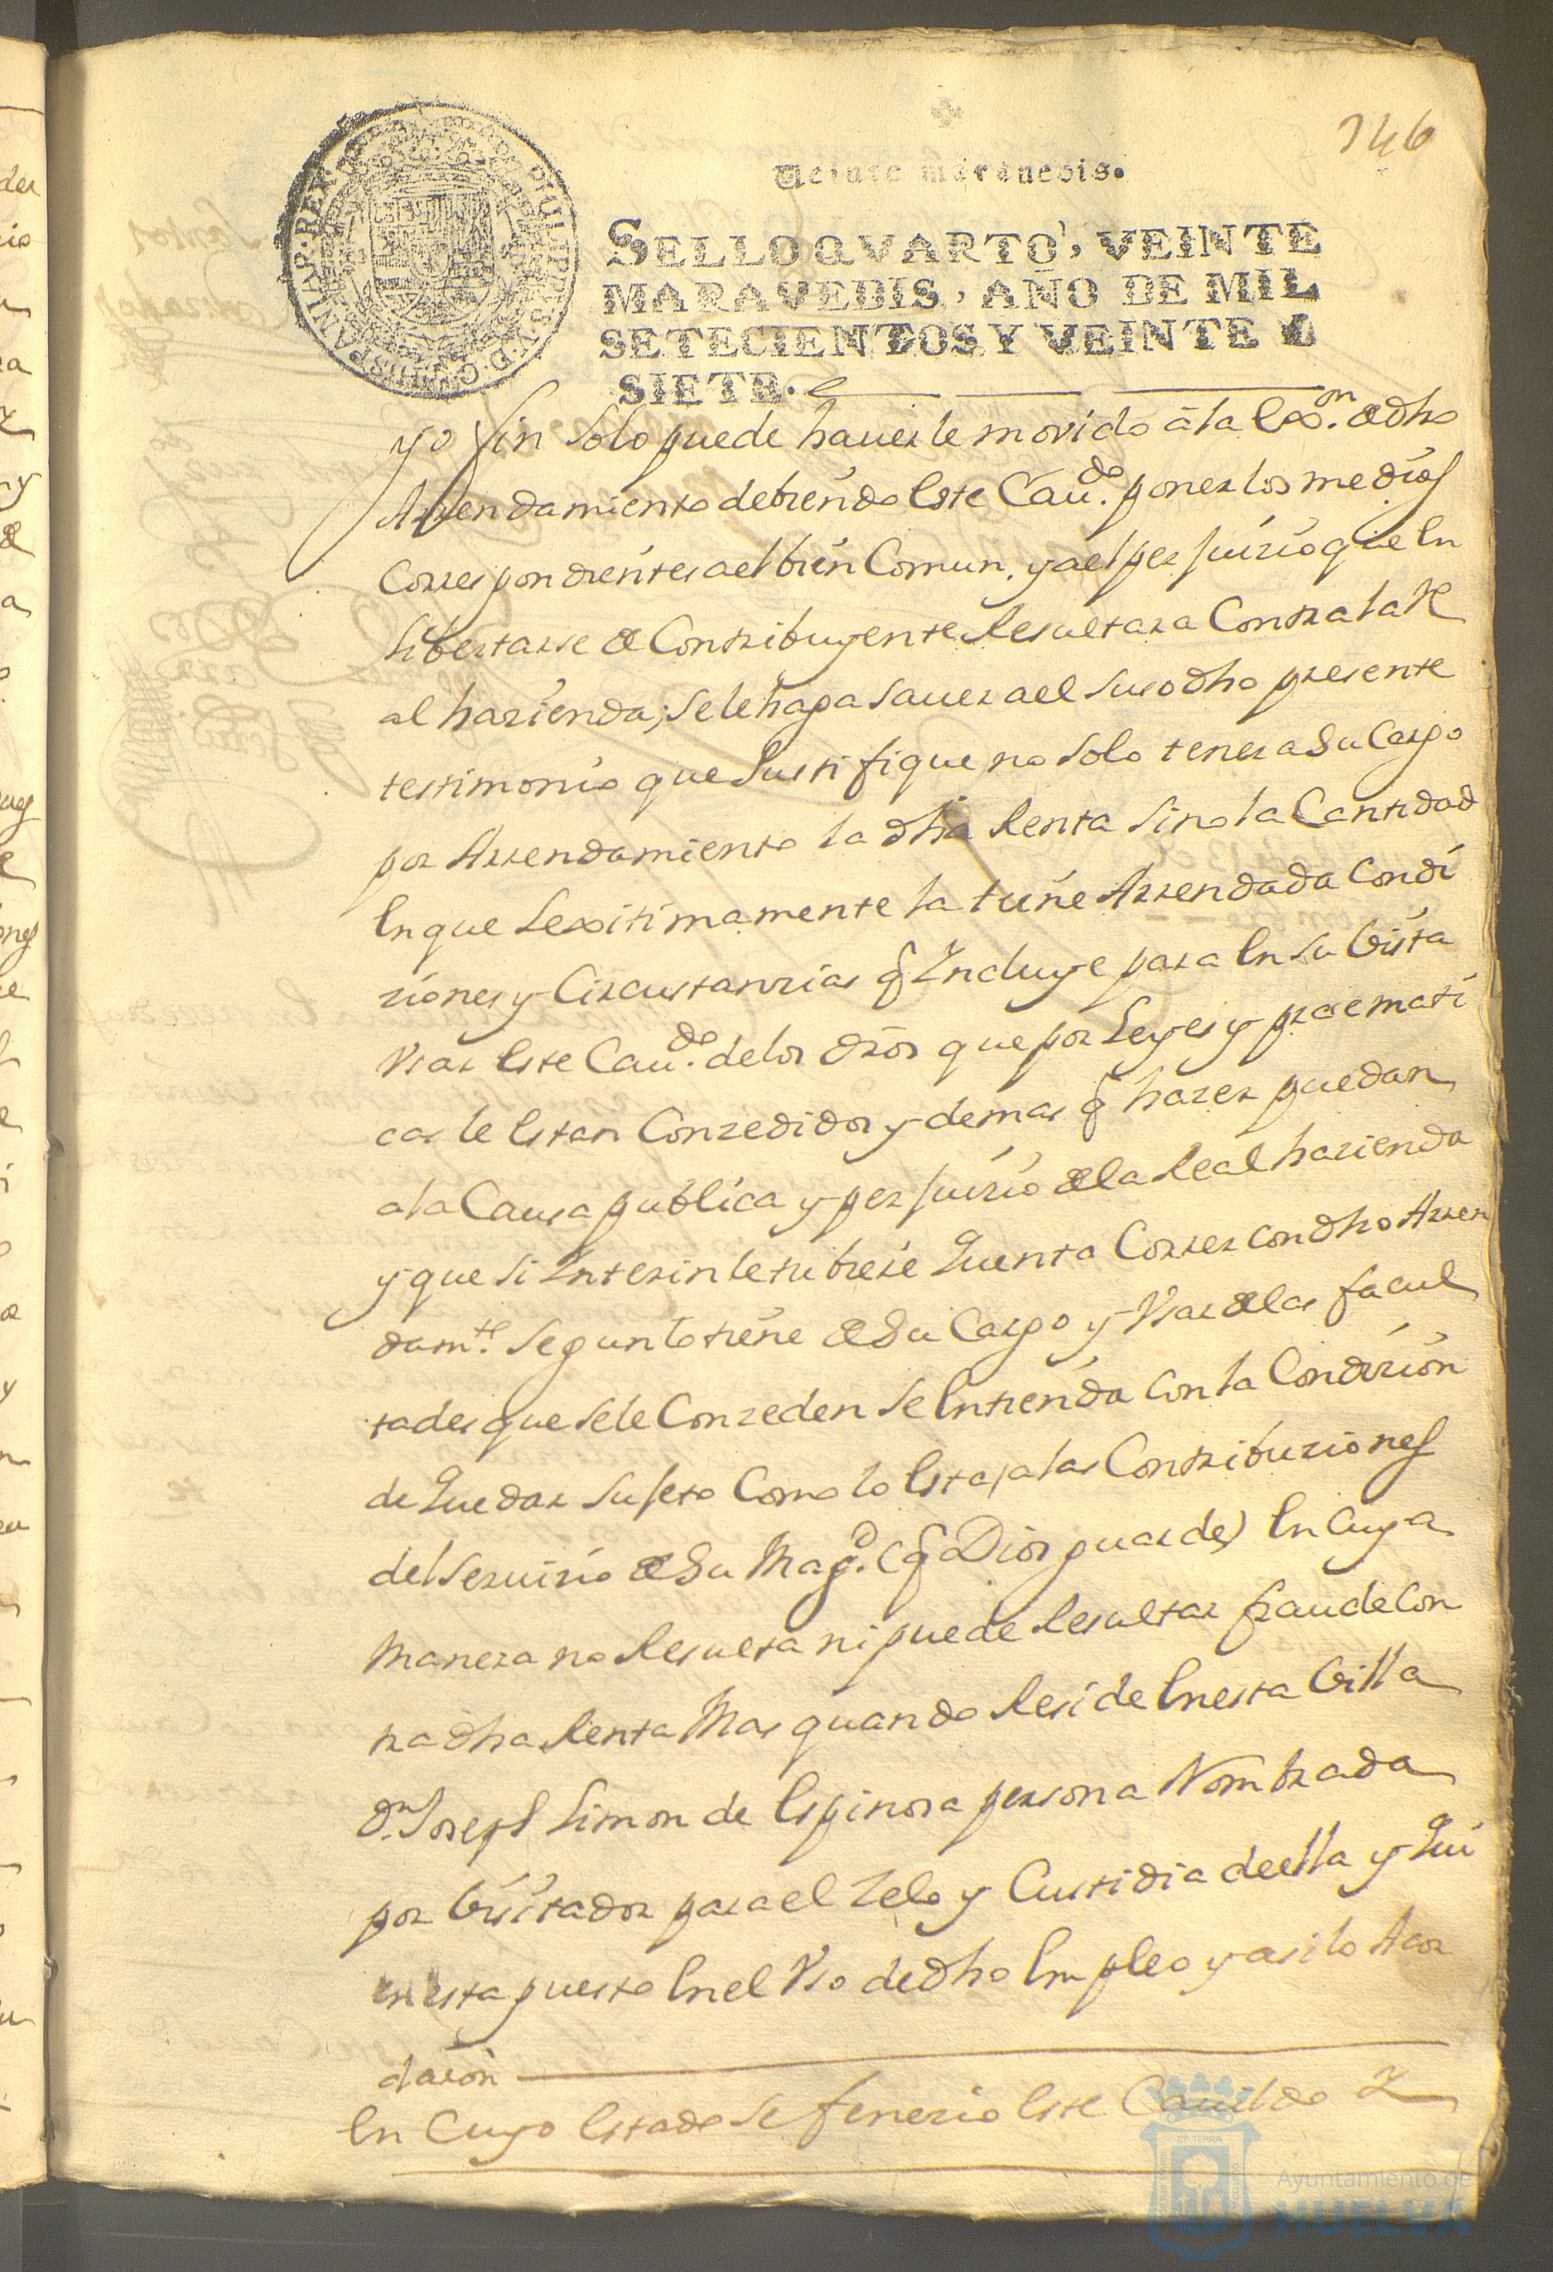 346
Veinte maravedis.
SELLO QVARTO, VEINTE
MARAVEDIS, AÑO DE MIL
SETECIENTOS Y VEINTE Y
SIETE.
PHILIPPUS V D G HISPANIAR REX
yo fin solo puede hauerle movido â la exon. de dho
Arrendamiento debiendo este Caudo. poner los medios
correspondientes a el bien Comun. y a el perjuizio que en
libertarse de Contribuyente Resultara Contra la Re
al hazienda; se le haga sauer a el susodho presente
testimonio que Justifique no solo tener a Su Cargo
por Arrendamiento la dha Renta sino la Cantidad
en que Lexitimamente la tiene Arrendada Condi
ziones y Circustanzias q Incluye para en su Vista
Vsar este Caudo. de los dros que por Leyes y pracmati
cas le estan Conzedidos y demas q hazer puedan
a la Causa publica y perjuizio de la Real hazienda
y que si Interin le tubiese Quenta Correr con dho Arren
damto. segun lo tiene de Su Cargo y Vsar de las facul
tades que se le Conzeden se entienda con la Condizion
de Quedar Sujeto Como lo esta, a las Contribuziones
del Seruizio de Su Magd. (q Dios guarde) en Cuya
Manera no Resulta ni puede Resultar fraude con
tra dha Renta Mas quando Reside en esta Villa
Dn. Joseph Simon de espinosa persona Nombrada
por Visitador para el zelo y Custidia de ella y Qui
en esta puesto en el Vso de dho empleo y asi lo Acor
daron
en Cuyo estado se fenezio este Cauildo
Ayuntamiento de
HUELVA